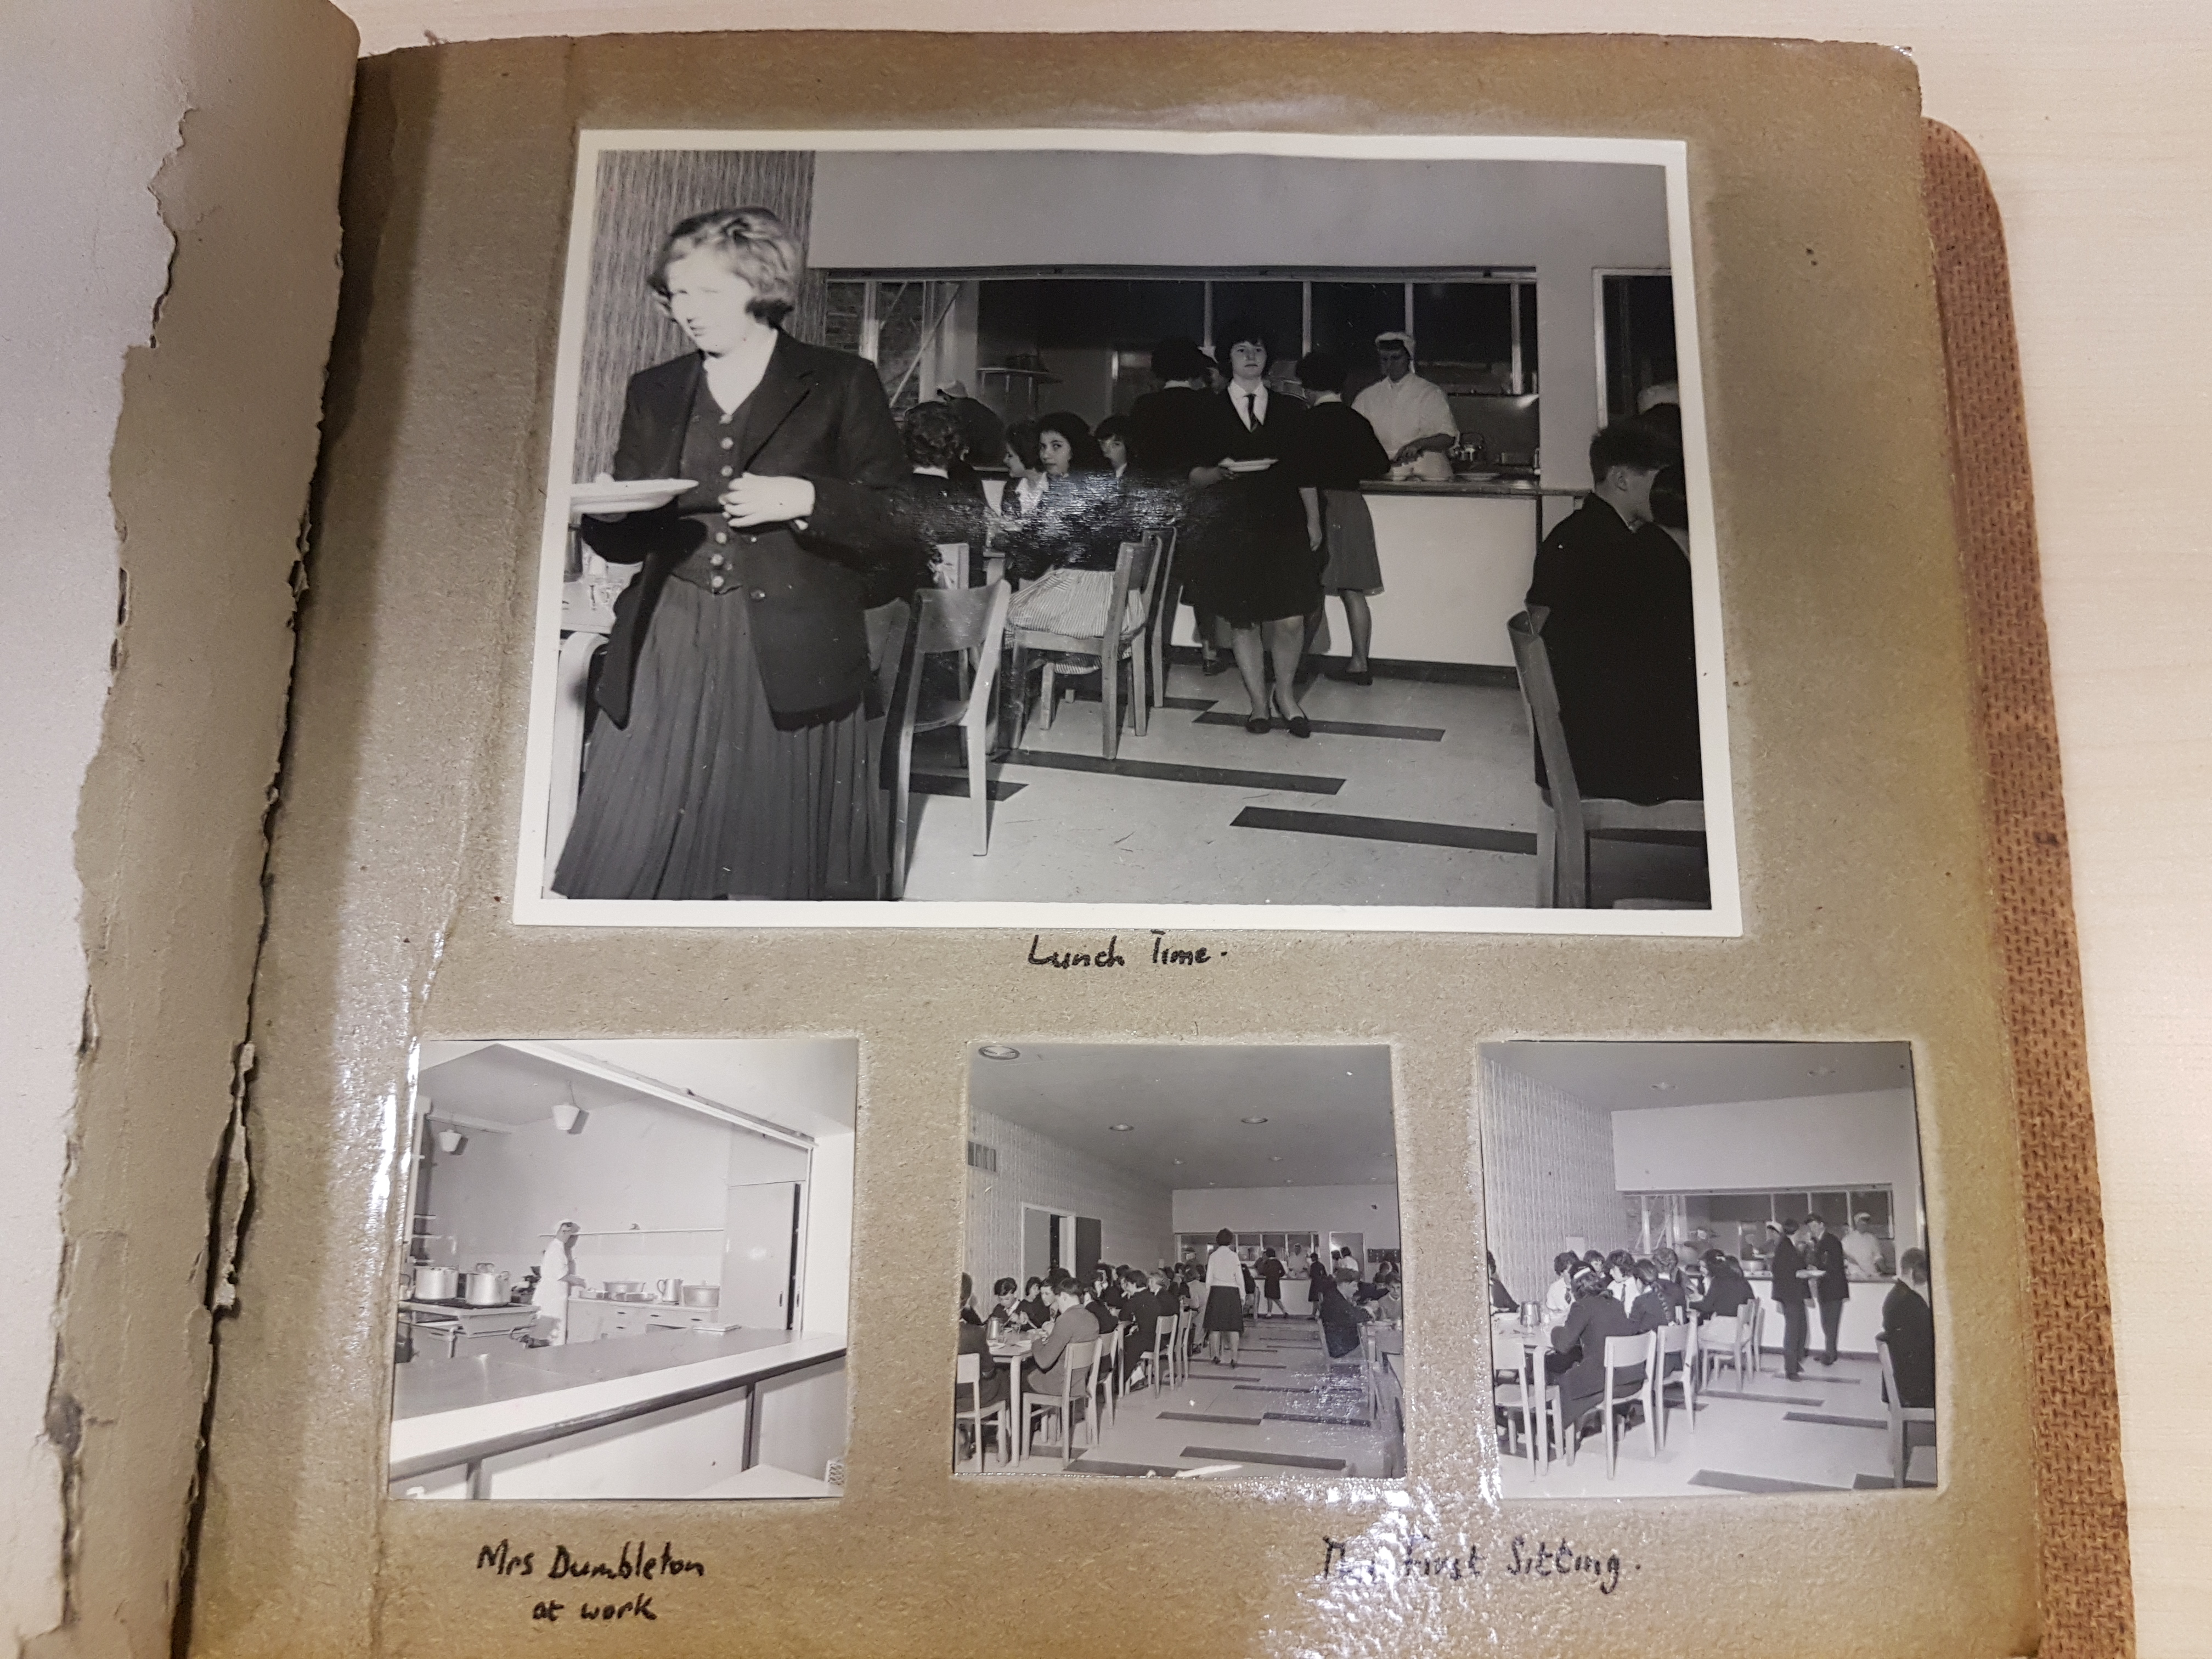 Lunch Time.
Mrs Dumbleton
at work
The First Sitting.